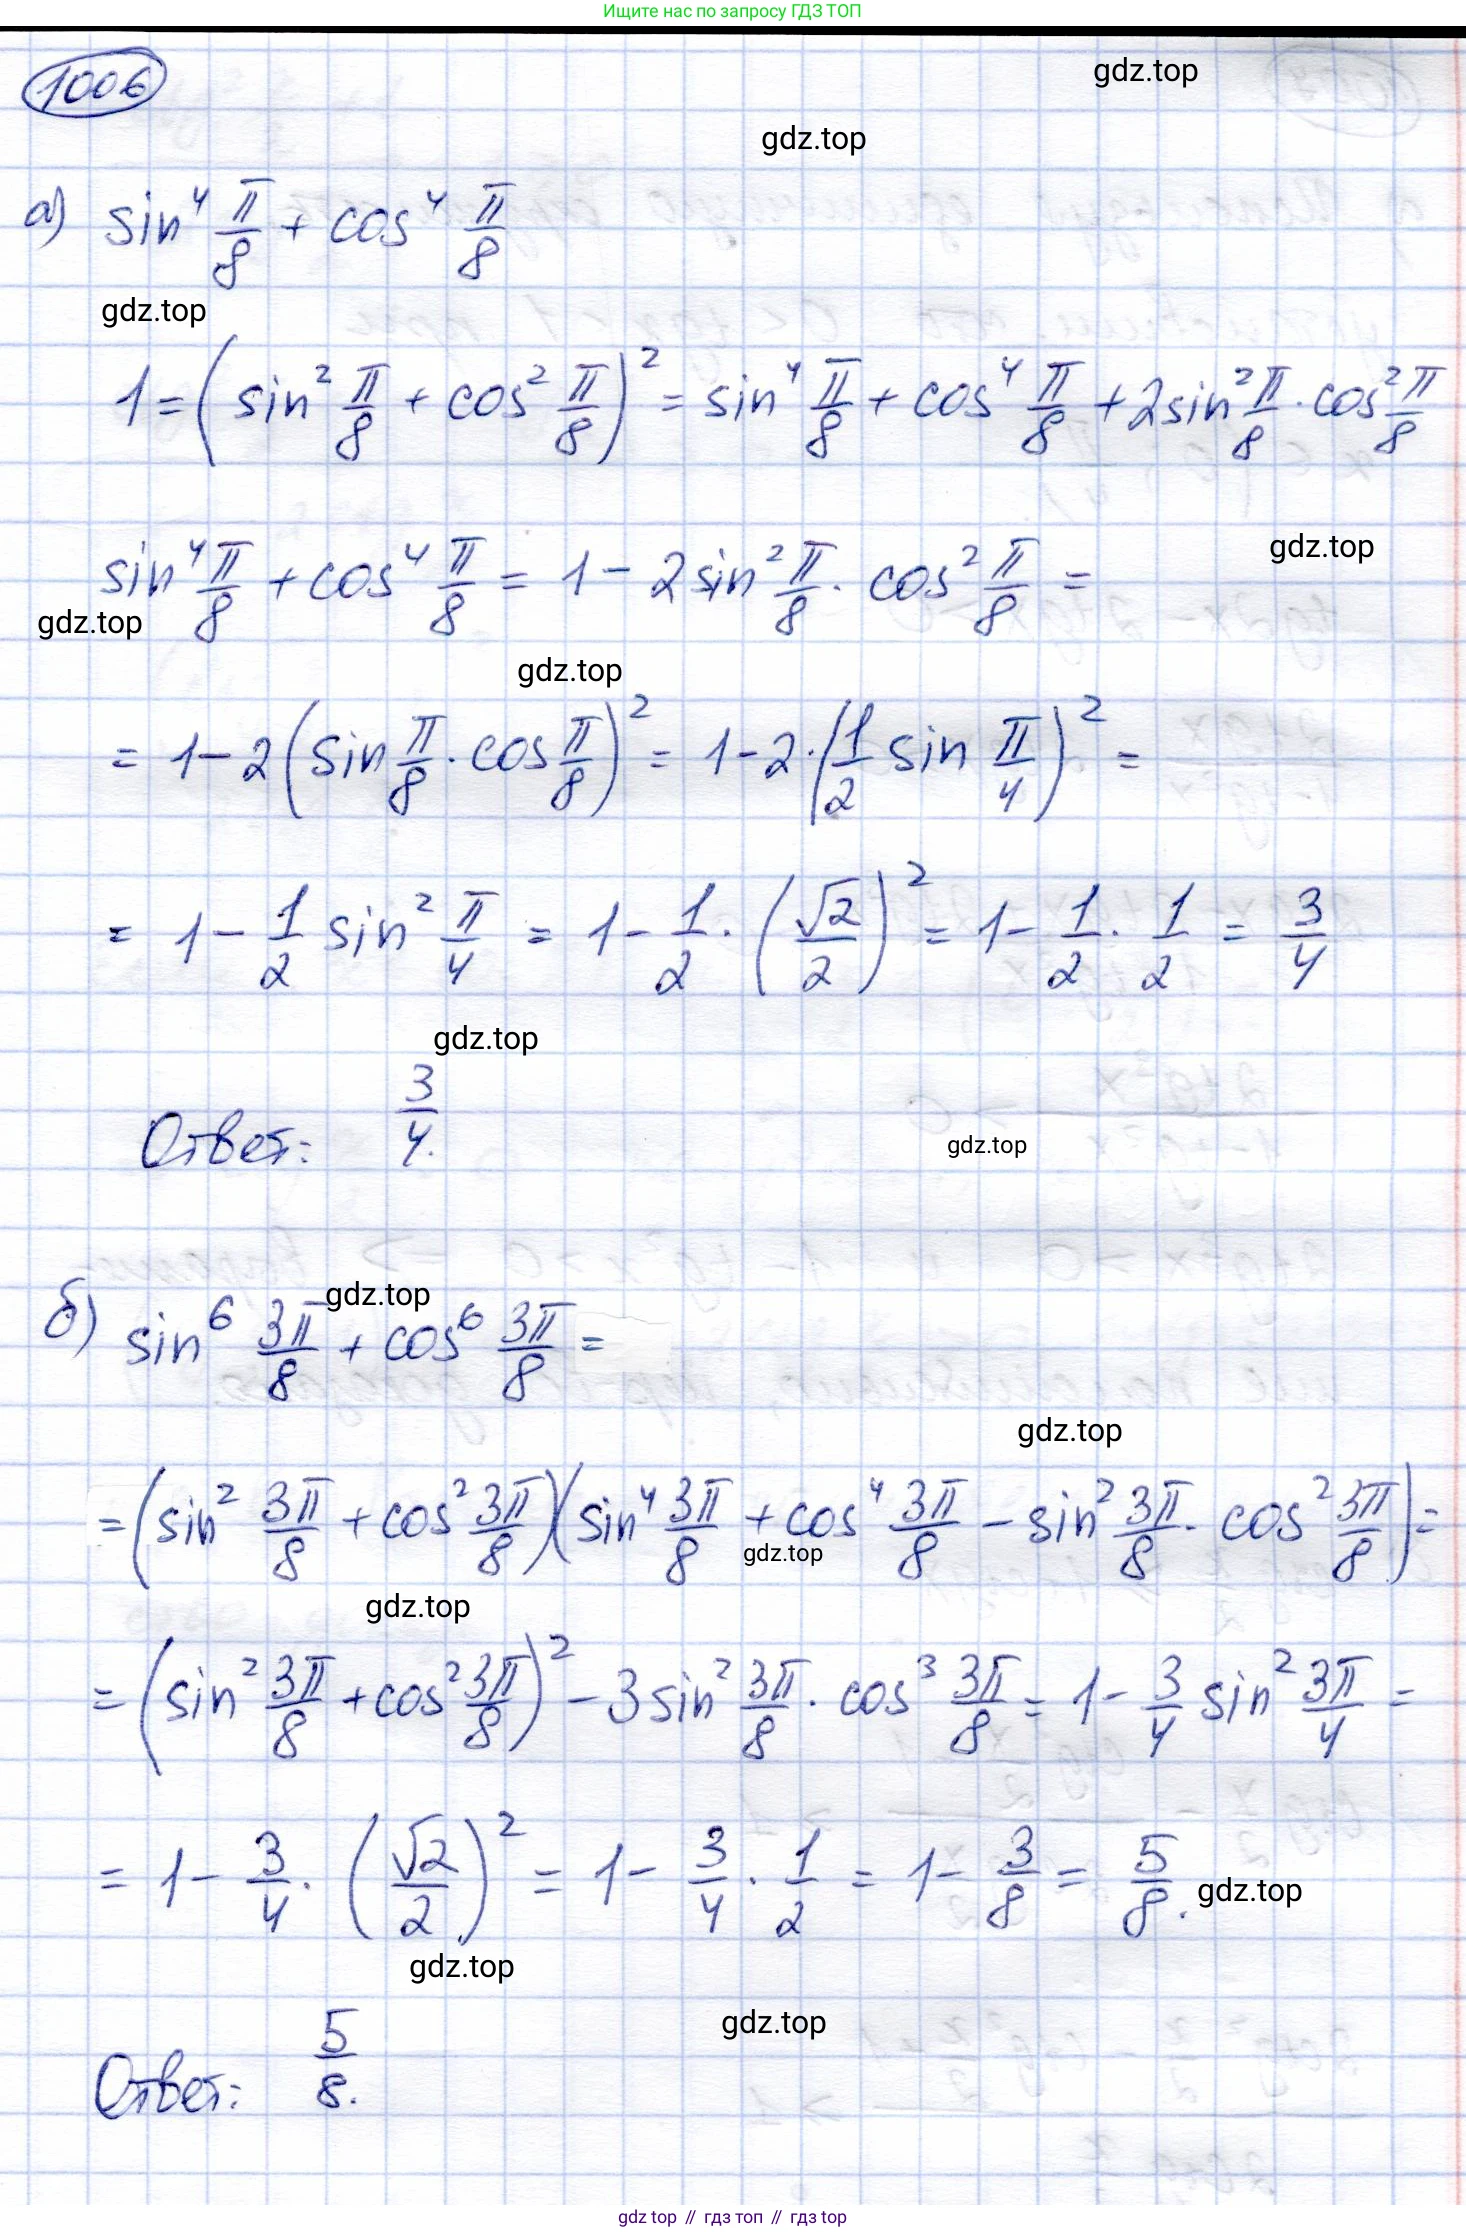 Ищите нас по запросу ГДЗ ТОП
1006
gdz.top
gdz.top
а) sin⁴ π/8 + cos⁴ π/8
gdz.top
1 = (sin² π/8 + cos² π/8)² = sin⁴ π/8 + cos⁴ π/8 + 2sin² π/8 · cos² π/8
sin⁴ π/8 + cos⁴ π/8 = 1 - 2sin² π/8 · cos² π/8 =
gdz.top
gdz.top
gdz.top
= 1 - 2(sin π/8 · cos π/8)² = 1 - 2·(1/2 sin π/4)² =
= 1 - 1/2 sin² π/4 = 1 - 1/2 · (√2/2)² = 1 - 1/2 · 1/2 = 3/4
gdz.top
Ответ: 3/4.
gdz.top
gdz.top
б) sin⁶ 3π/8 + cos⁶ 3π/8 =
gdz.top
= (sin² 3π/8 + cos² 3π/8)(sin⁴ 3π/8 + cos⁴ 3π/8 - sin² 3π/8 · cos² 3π/8) =
gdz.top
gdz.top
= (sin² 3π/8 + cos² 3π/8)² - 3sin² 3π/8 · cos³ 3π/8 = 1 - 3/4 sin² 3π/4 =
= 1 - 3/4 · (√2/2)² = 1 - 3/4 · 1/2 = 1 - 3/8 = 5/8.
gdz.top
gdz.top
gdz.top
Ответ: 5/8.
gdz.top // гдз топ // гдз top